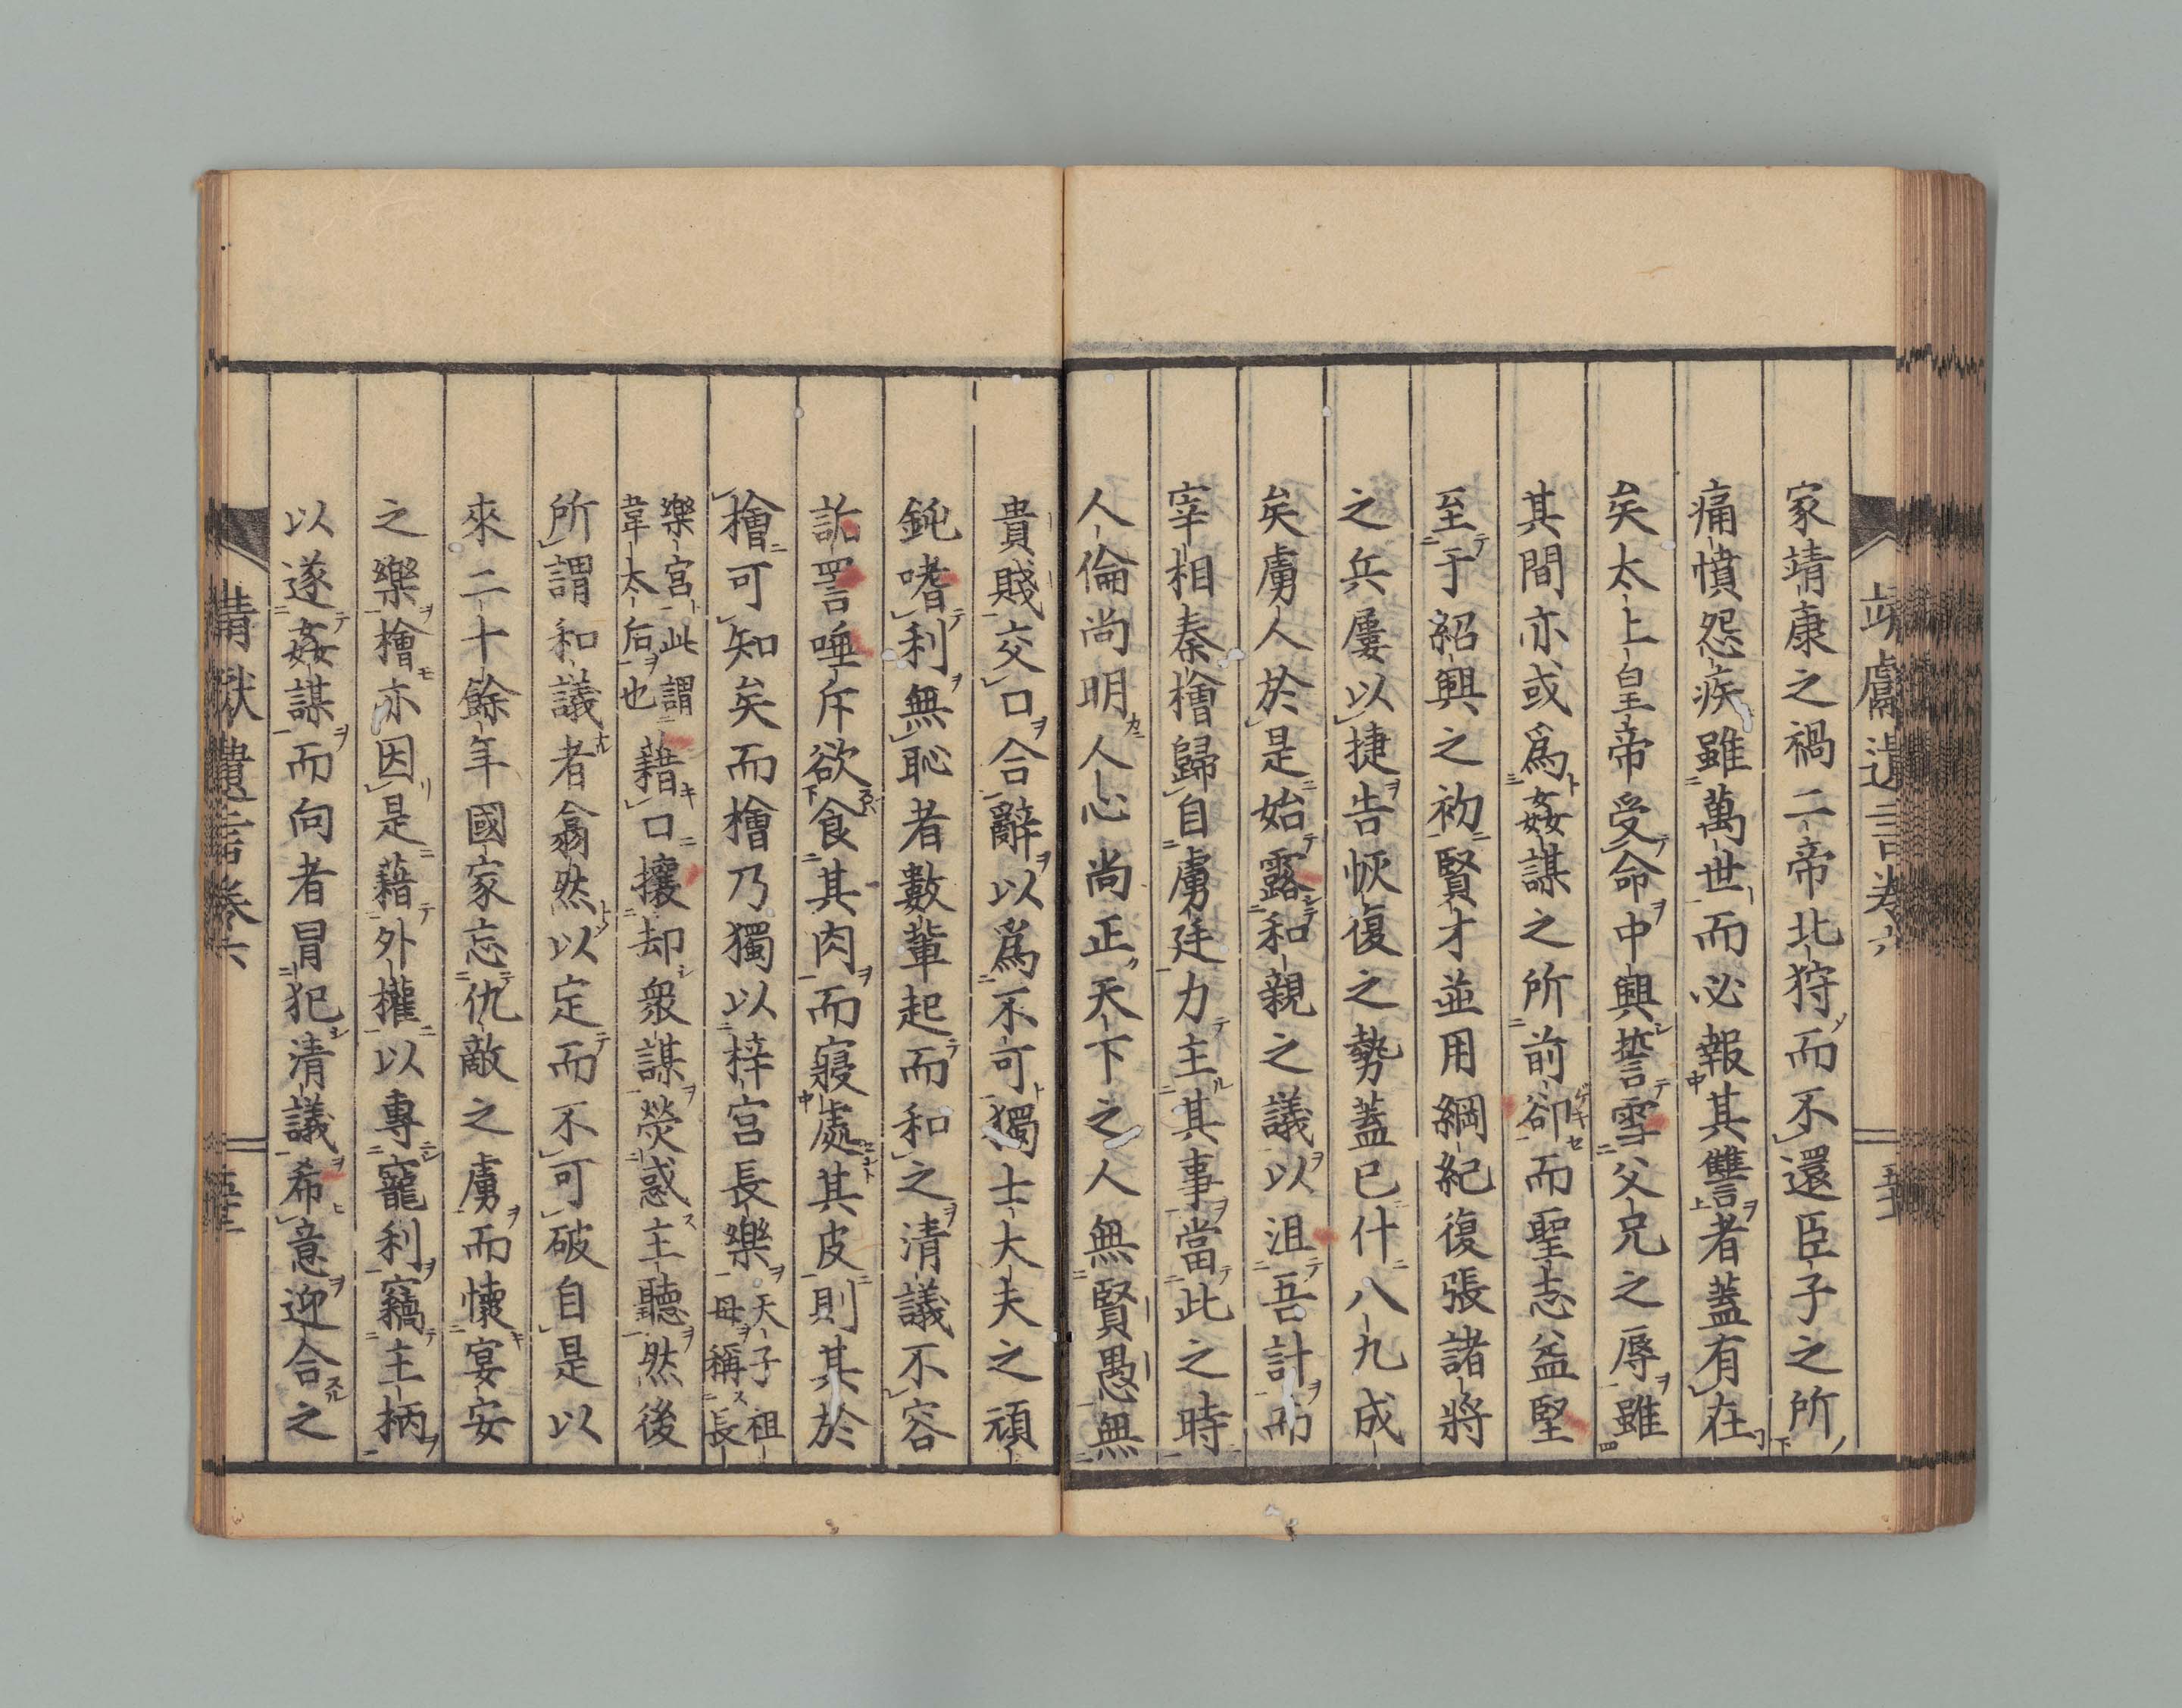 家靖康之禍二帝北狩而不還臣子之所
痛憤怨疾雖萬世而必報其讐者蓋有在
矣太上皇帝受命中興誓雪父兄之辱雖
其間亦或爲姦謀之所前卻而聖志益堅
至于紹興之初賢才並用綱紀復張諸將
之兵屢以捷告恢復之勢蓋已什八九成
矣虜人於是始露和親之議以沮吾計而
宰相秦檜歸自虜廷力主其事當此之時
人倫尚明人心尚正天下之人無賢愚無
貴賤交口合辭以爲不可獨士大夫之頑
鈍嗜利無恥者數輩起而和之清議不容
詬詈唾斥欲食其肉而寢處其皮則其於
檜可知矣而檜乃獨以梓宮長樂天子祖母稱長
樂宮此謂韋太后也藉口攘却衆謀熒惑主聽然後
所謂和議者翕然以定而不可破自是以
來二十餘年國家忘仇敵之虜而懷宴安
之樂檜亦因是藉外權以專寵利竊主柄
以遂姦謀而向者冒犯清議希意迎合之
靖獻遺言卷六